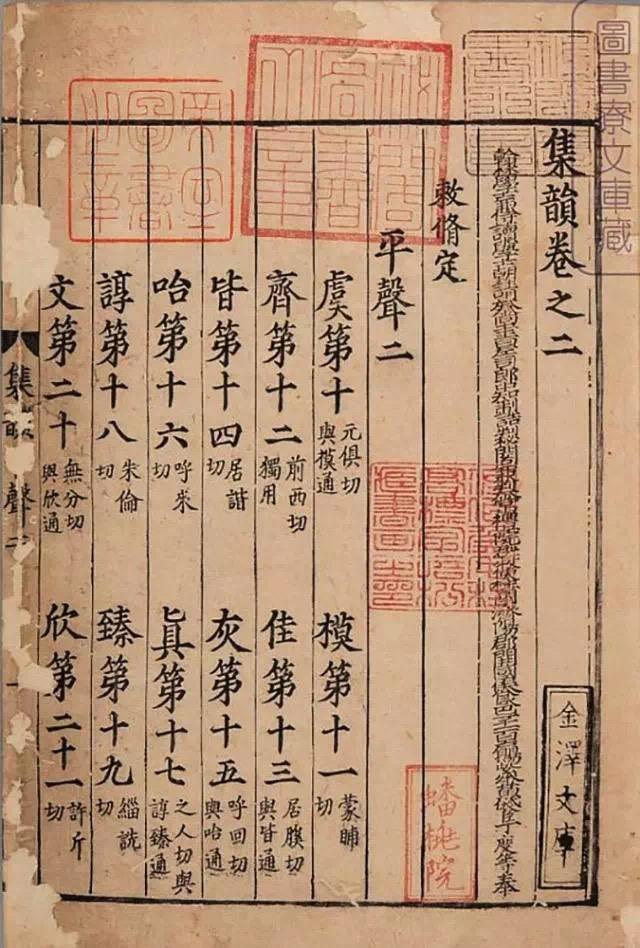 圖書寮文庫藏
集韻卷之二
金澤文庫
翰林學士兼侍讀學士朝請大夫尚書左司郎中知制誥判祕閣兼判太常禮院羣牧使柱國濟陽郡開國侯食邑一千二百戶賜紫金魚袋臣丁度等奉
敕脩定
蟠桃院
平聲二
虞第十 元俱切與模通 模第十一 蒙晡切
齊第十二 前西切獨用 佳第十三 居膎切與皆通
皆第十四 居諧切 灰第十五 呼回切與咍通
咍第十六 呼來切 眞第十七 之人切與諄臻通
諄第十八 朱倫切 臻第十九 緇詵切
文第二十 無分切與欣通 欣第二十一 許斤切
集 聲二